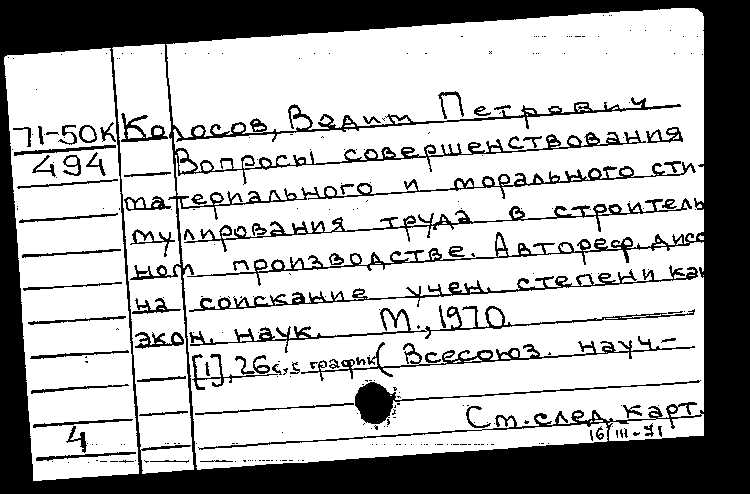 71-50К Колосов, Вадим Петрович
494 Вопросы совершенствования
материального и морального сти-
мулирования труда в строитель
ном производстве. Автореф. дисс
на соискание учен. степени кан
экон. наук. М., 1970.
[1], 26 с., с график (Всесоюз. науч.-
См. след. карт.
4
16/III-71